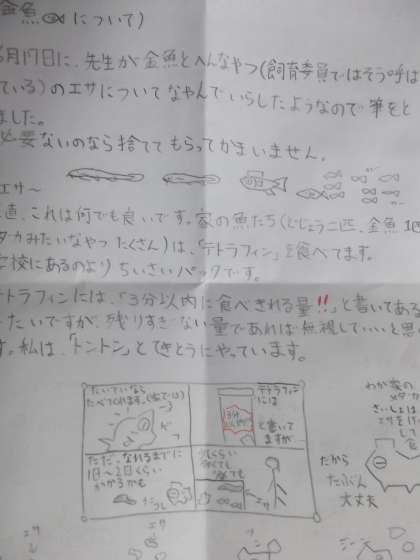 金魚 について)
6月17日に、先生が金魚とへんなやつ(飼育委員ではそう呼ば
ている)のエサについてなやんでいらしたようなので筆をと
ました。
必要ないのなら捨ててもらってかまいません。
エサ〜
直、これは何でも良いです。家の魚たち(どじょう二匹、金魚1匹
ダカみたいなやつ たくさん)は、「テトラフィン」を食べてます。
学校にあるのより ちいさいパックです。
テトラフィンには、「3分以内に食べきれる量!!」と書いてある
たいですが、残りすぎない量であれば無視していいと思
す。私は、「トントン」とてきとうにやっています。
たいていなら
たべてくれます。(家では)
テトラフィン
には
3分
と書いて
ますが
ただ、なれるまでに
1日〜2日くらい
かかるかも
少しくらい
エサ
わが家の
メダカ
さいしょは
エサを
して
食
だから
たぶん
大丈夫
エサ
エサ